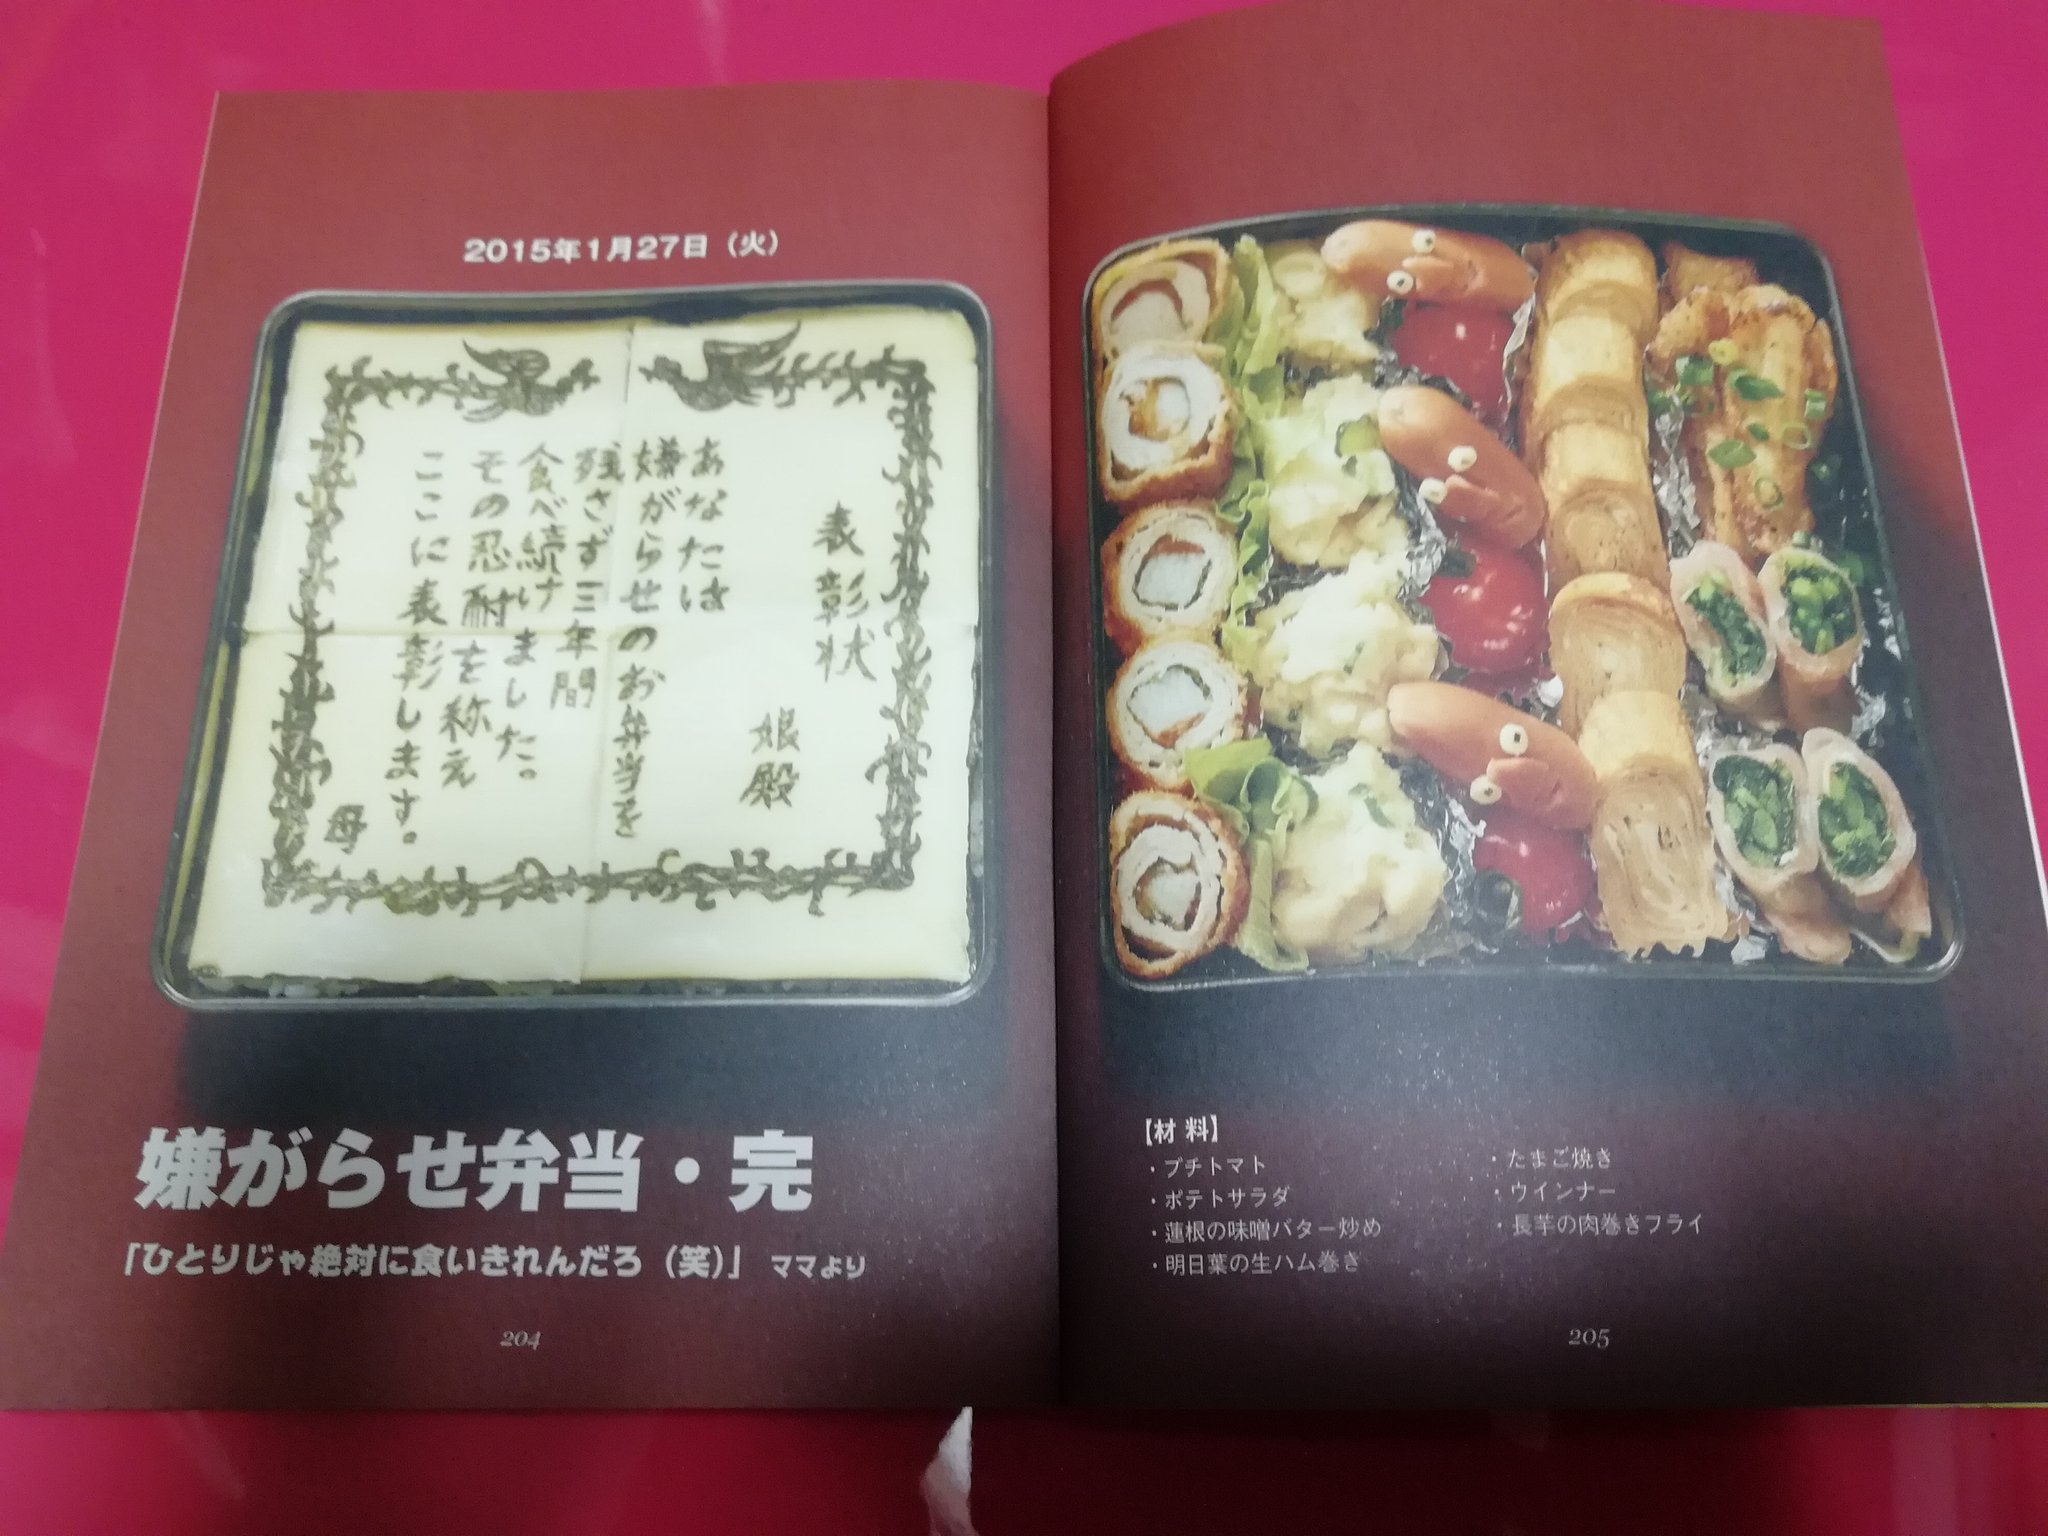 2015年1月27日（火）
表彰状
娘殿
あなたは
嫌がらせのお弁当を
残さず三年間
食べ続けました。
その忍耐を称え
ここに表彰します。
母
嫌がらせ弁当・完
「ひとりじゃ絶対に食いきれんだろ（笑）」 ママより
204
【材 料】
・プチトマト
・ポテトサラダ
・蓮根の味噌バター炒め
・明日葉の生ハム巻き
・たまご焼き
・ウインナー
・長芋の肉巻きフライ
205